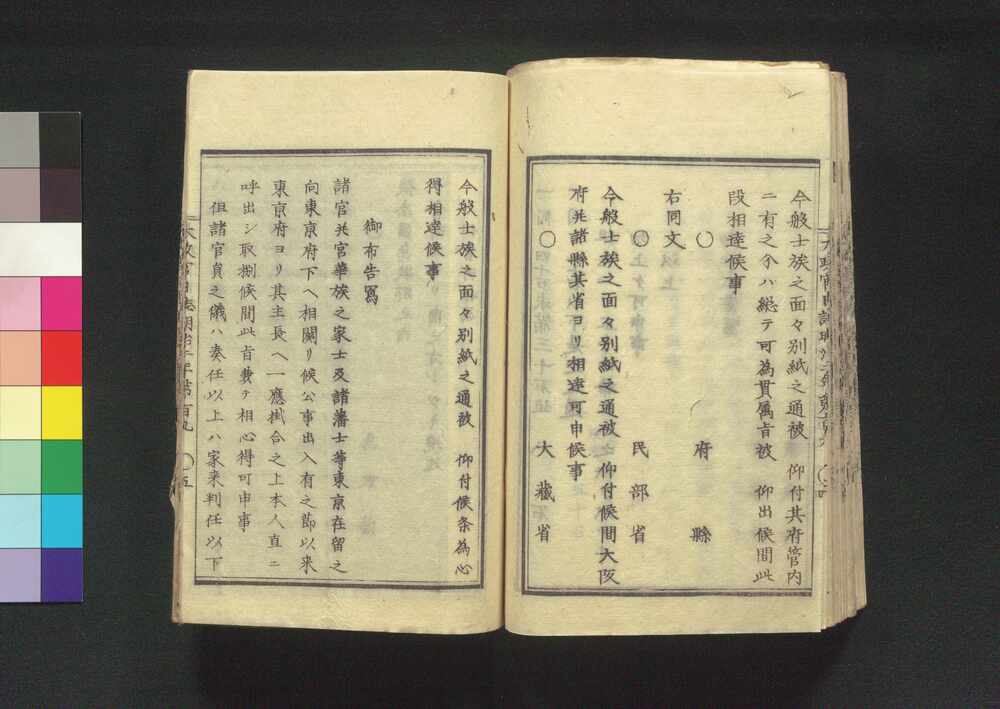 今般士族之面々別紙之通被　仰付其府管内
ニ有之分ハ總テ可為貫属旨被　仰出候間此
段相達候事
○　府　縣
右同文
○　民部省
今般士族之面々別紙之通被　仰付候間大阪
府共諸縣其省ヨリ相達可申候事
○　大藏省
今般士族之面々別紙之通被　仰付候条為心
得相達候事
御布告寫
諸官共官華族之家士及諸藩士等東京在留之
向東京府下へ相關リ候公事出入有之節以来
東京府ヨリ其主長へ一應掛合之上本人直ニ
呼出シ取捌候間此旨兼テ相心得可申事
但諸官員之儀ハ奏任以上ハ家来判任以下
太政官日誌明治二年第百九　○五